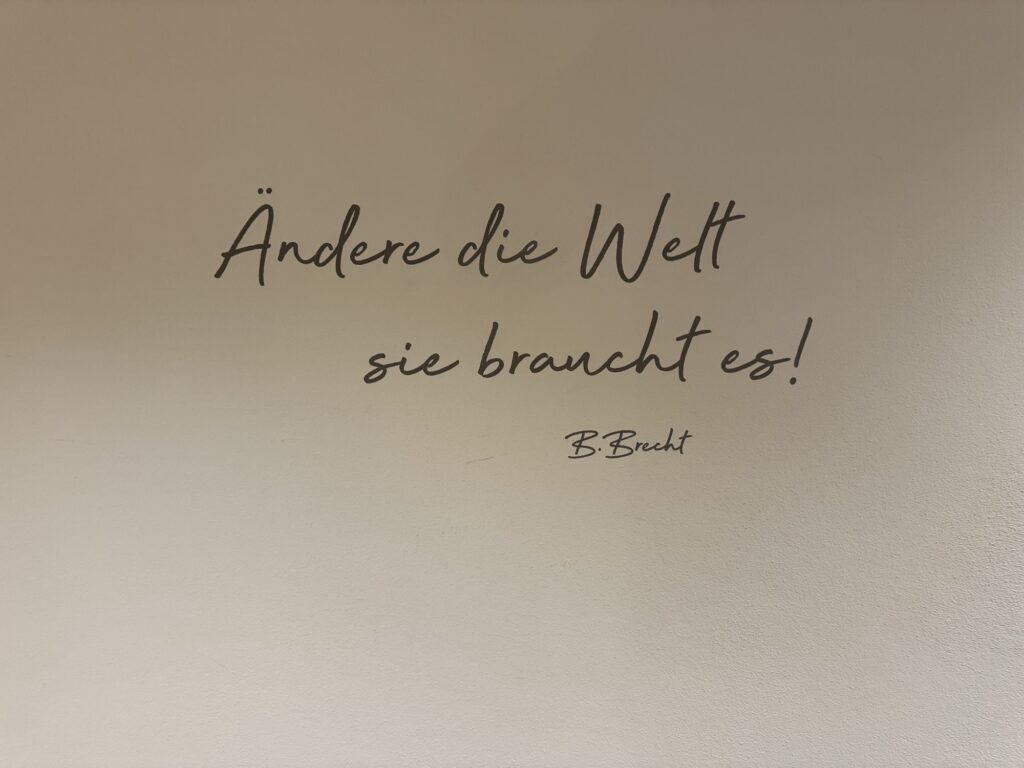 Ändere die Welt
sie braucht es!
B. Brecht